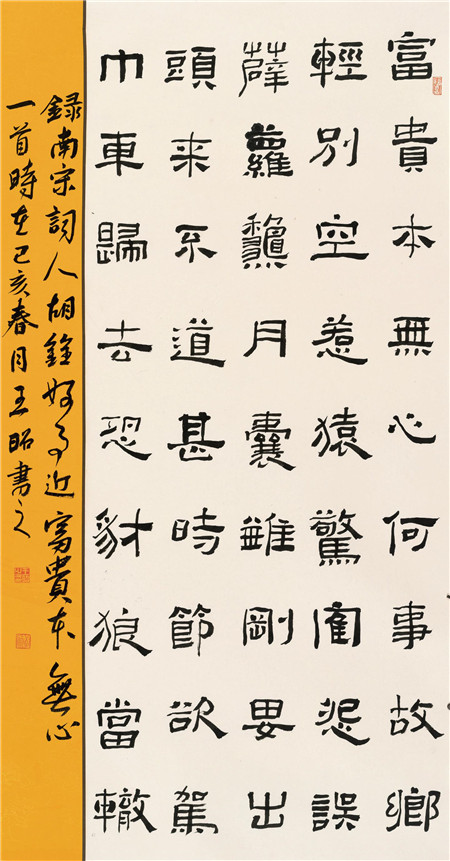 富貴本無心何事故鄉
輕別空惹猿驚寉怨誤
薜蘿龝月囊雖剛要出
頭来不道甚時節欲駕
巾車歸去恐豺狼當轍
録南宋詞人胡銓好事近富貴本無心
一首時在己亥春月王昭書之